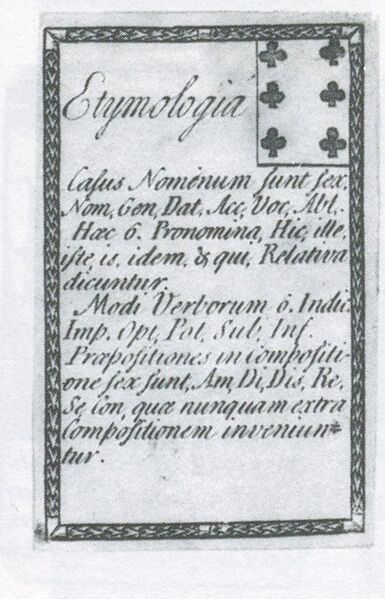 Etymologia
Casus Nominum sunt sex,
Nom, Gen, Dat, Acc, Voc, Abl.
Hæc 6. Pronomina, Hic, ille,
iste, is, idem, & qui, Relativa
dicuntur.
Modi Verborum 6. Indic,
Imp. Opt, Pot, Sub, Inf.
Præpositiones in Compositi-
one sex sunt, Am, Di, Dis, Re,
Se, Con, quæ nunquam extra
Compositionem inveniun=
tur.